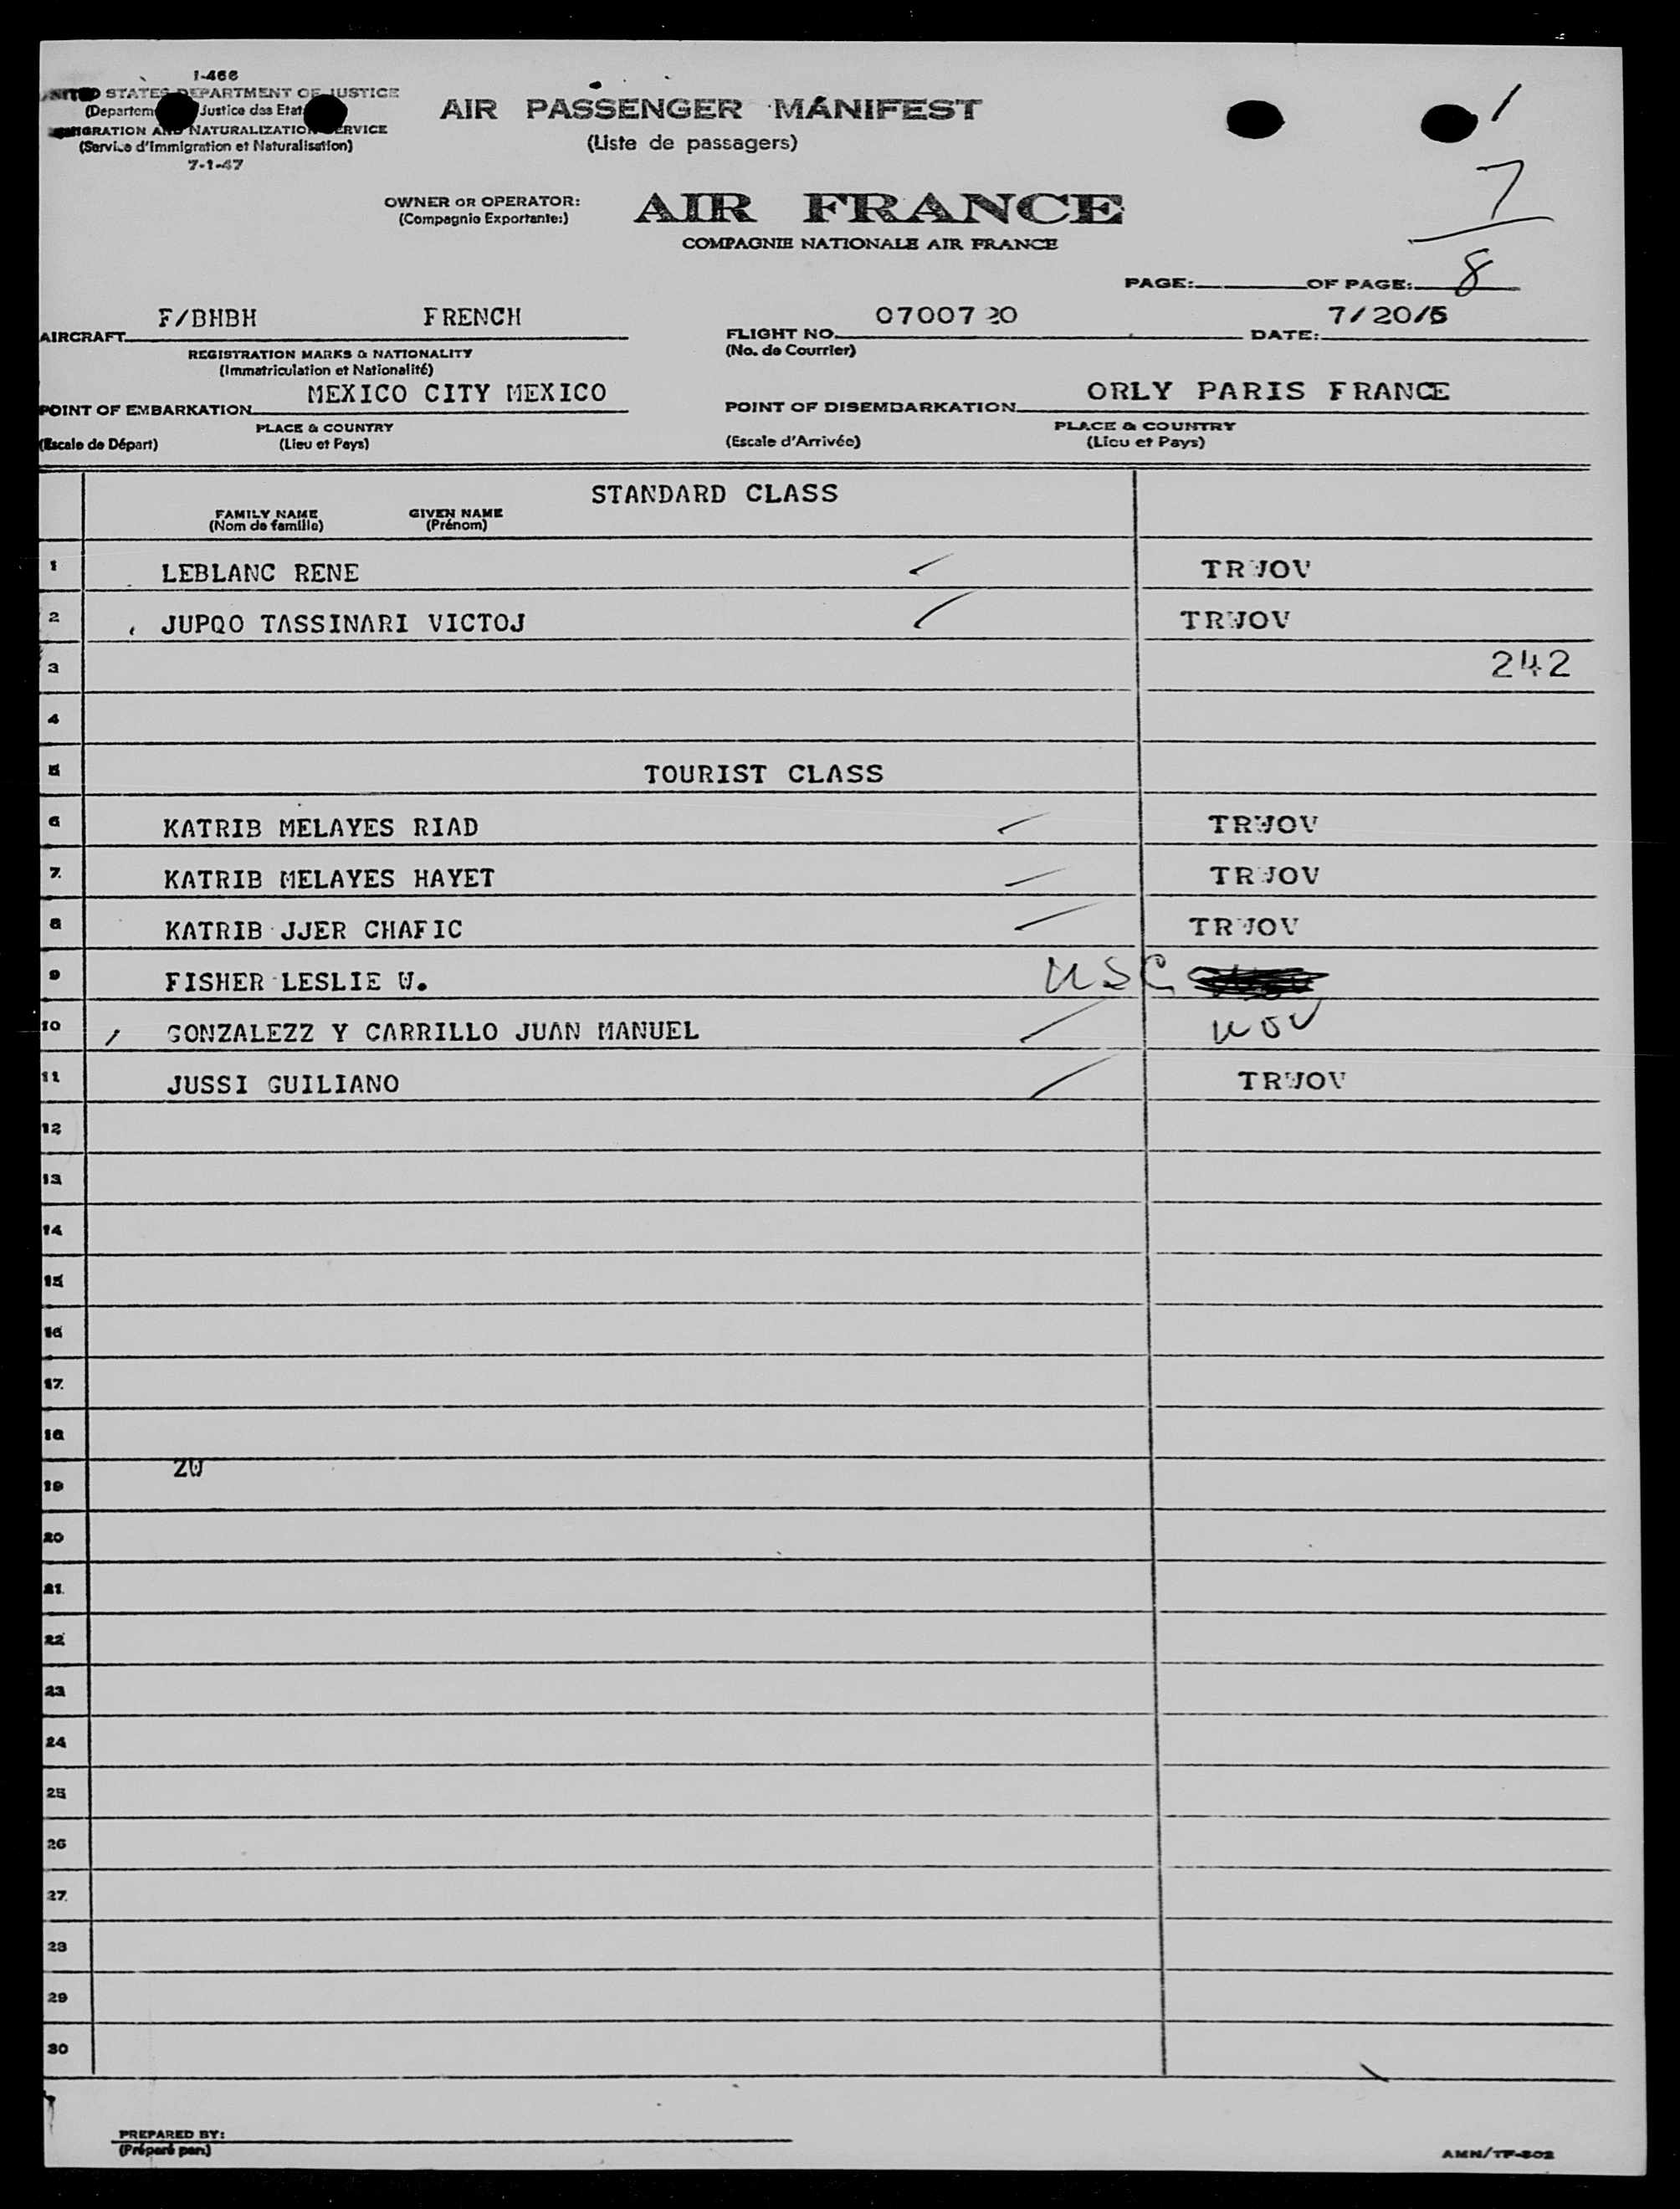 I-466
UNITED STATES DEPARTMENT OF JUSTICE
Justice des
IMMIGRATION AND NATURALIZATION SERVICE
(Service d'Immigration et Naturalisation)
7-1-47
AIR PASSENGER MANIFEST
(Liste de passagers)
OWNER OR OPERATOR: AIR FRANCE
(Compagnie Exportante:)
COMPAGNIE NATIONALE AIR FRANCE
1
7
8
PAGE: OF PAGE:
AIRCRAFT F/BHBH FRENCH FLIGHT NO. 07007 20 DATE: 7/20/5
REGISTRATION MARKS & NATIONALITY (No. de Courrier)
(Immatriculation et Nationalité)
POINT OF EMBARKATION MEXICO CITY MEXICO POINT OF DISEMBARKATION ORLY PARIS FRANCE
PLACE & COUNTRY PLACE & COUNTRY
(Escale de Départ) (Lieu et Pays) (Escale d'Arrivée) (Lieu et Pays)
STANDARD CLASS
FAMILY NAME GIVEN NAME
(Nom de famille) (Prénom)
1 LEBLANC RENE TRWOV
2 JUPQO TASSINARI VICTOJ TRWOV
3 242
4
5 TOURIST CLASS
6 KATRIB MELAYES RIAD TRWOV
7. KATRIB MELAYES HAYET TRWOV
8 KATRIB JJER CHAFIC TRWOV
9 FISHER LESLIE W. USC
10 GONZALEZZ Y CARRILLO JUAN MANUEL WOV
11 JUSSI GUILIANO TRWOV
12
13
14
15
16
17.
18
19 2W
20
21.
22
23
24
25
26
27.
28
29
30
PREPARED BY:
(Préparé par:)
AMN/TF-302